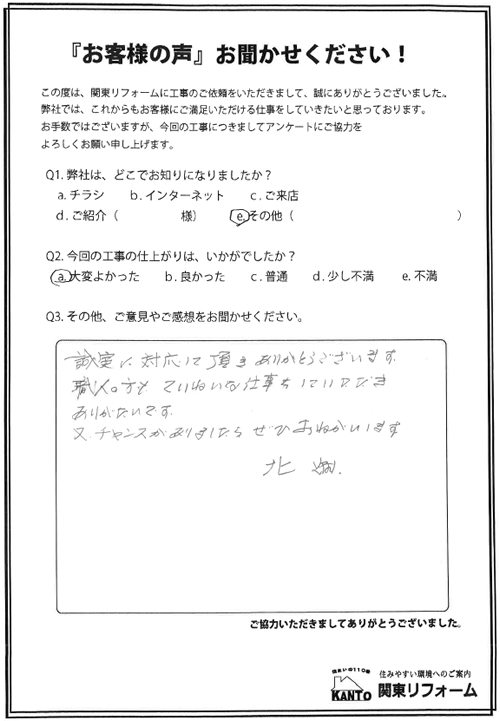 『お客様の声』お聞かせください！
この度は、関東リフォームに工事のご依頼をいただきまして、誠にありがとうございました。
弊社では、これからもお客様にご満足いただける仕事をしていきたいと思っております。
お手数ではございますが、今回の工事につきましてアンケートにご協力を
よろしくお願い申し上げます。
Q1. 弊社は、どこでお知りになりましたか？
a. チラシ　b. インターネット　c. ご来店
d. ご紹介（　　　　様）　e. その他（　　　　　　　　）
Q2. 今回の工事の仕上がりは、いかがでしたか？
a. 大変よかった　b. 良かった　c. 普通　d. 少し不満　e. 不満
Q3. その他、ご意見やご感想をお聞かせください。
誠実に対応して頂きありがとうございます。
職人の方も ていねいな仕事をしていただき
ありがたいです。
又、チャンスがありましたら ぜひおねがいします
北
ご協力いただきましてありがとうございました。
住まいの110番
KANTO
住みやすい環境へのご案内
関東リフォーム